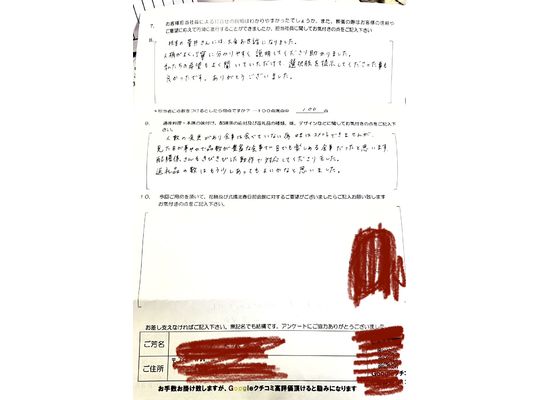 7. お客様担当社員による打合せの説明はわかりやすかったでしょうか。また、葬儀の際はお客様の意向や
ご要望に応えて円滑に進行することができましたか、担当社員に関してお気付きの点をご記入下さい
8.
担当の葦井さんには、大変お世話になりました。
人柄がよく、丁寧に分かりやすく説明してくださり助かりました。
私たちの希望もよく聞いていただけて、選択肢を提示してくださった事も
良かったです。ありがとうございました。
＊担当者に点数をつけるとしたら何点ですか？ー100点満点中 100 点
9. 通夜料理・本膳の味付け、配膳係の応対及び返礼品の種類、味、デザインなどに関してお気付きの点をご記入下さい。
人数の変更があり食事は食べていない為 味はコメントできませんが、
見た目が華やかで品数が豊富な食事で目でも楽しめる食事だったと思います
配膳係さんもきびきびした動作で対応してくださりました。
返礼品の数はもう少しあってもよいかなと思いました。
10. 今回ご用命を頂いて、花祭及び
に対するご要望がございましたらご記入お願い致します
お気付きの点をご記入下さい。
お差し支えなければご記入下さい。無記名でも結構です。アンケートにご協力ありがとうございました
ご芳名
ご住所
〒
お手数お掛け致しますが、Googleクチコミ高評価頂けると励みになります
Googleクチ